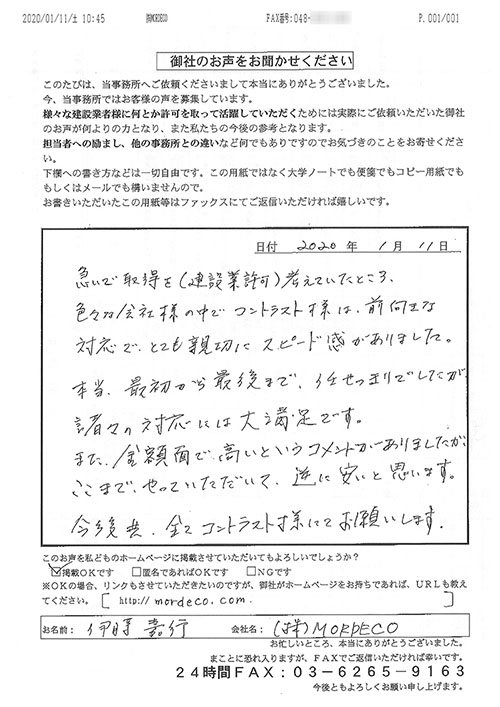 2020/01/11/土 10:45 ㈱MORDECO FAX番号:048- P.001/001
御社のお声をお聞かせください
このたびは、当事務所へご依頼くださいまして本当にありがとうございました。
今、当事務所ではお客様の声を募集しています。
様々な建設業者様に何とか許可を取って活躍していただくためには実際にご依頼いただいた御社
のお声が何よりの力となり、また私たちの今後の参考となります。
担当者への励まし、他の事務所との違いなど何でもありですのでお気づきのことをお寄せくださ
い。
下欄への書き方などは一切自由です。この用紙ではなく大学ノートでも便箋でもコピー用紙でも
もしくはメールでも構いませんので。
お書きいただいたこの用紙等はファックスにてご返信いただければ嬉しいです。
日付 2020 年 1 月 11 日
急いで取得を(建設業許可)考えていたところ、
色々な会社様の中でコントラスト様は、前向きな
対応で、とても親切にスピード感がありました。
本当、最初から最後まで、任せっきりでしたが
諸々の対応には大満足です。
また、金額面で高いというコメントがありましたが、
ここまで、やっていただいて、逆に安いと思います。
今後共、全てコントラスト様にてお願いします。
このお声を私どものホームページに掲載させていただいてもよろしいでしょうか？
☑掲載OKです □匿名であればOKです □NGです
※OKの場合、リンクもさせていただきたいのですが、御社がホームページをお持ちであれば、URLも教え
てください。[ http://mordeco.com. ]
お名前： 伊藤 嘉行 会社名： (株)MORDECO
お忙しいところ、本当にありがとうございました。
まことに恐れ入りますが、FAXでご返信いただければ幸いです。
24時間FAX：03-6265-9163
今後ともよろしくお願い申し上げます。